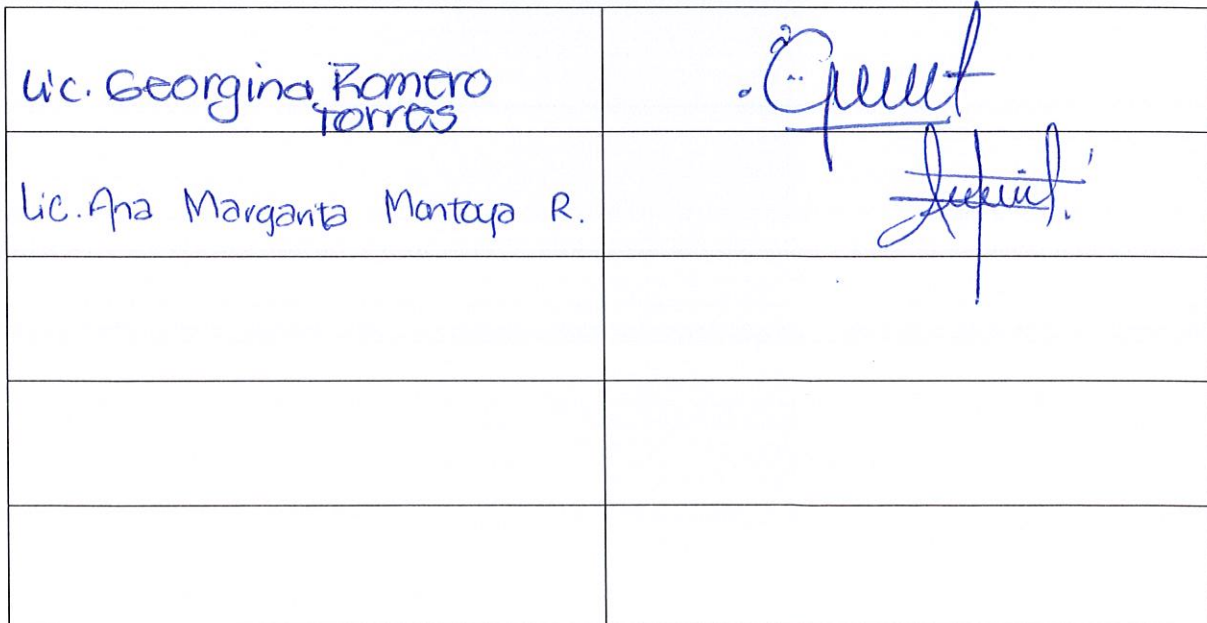 Lic. Georgina Romero
Torres
Lic. Ana Margarita Montoya R.